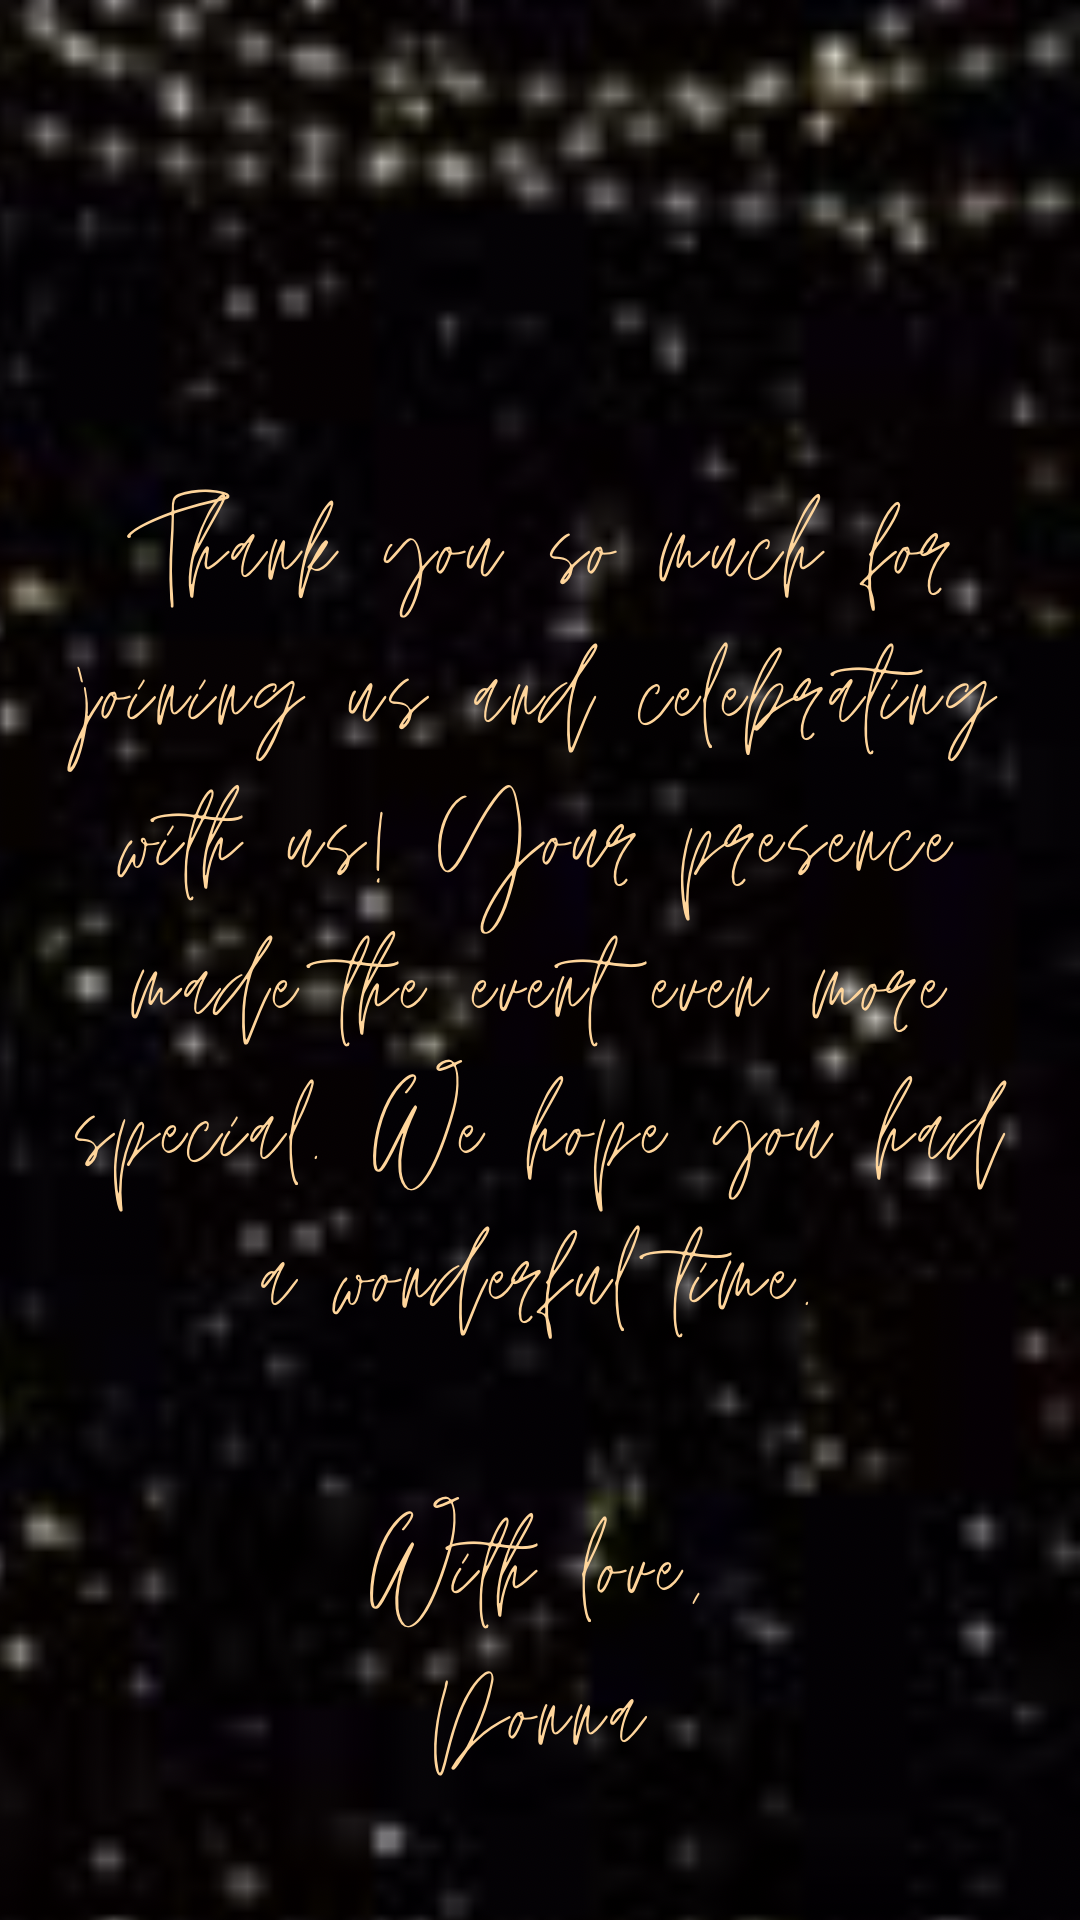 Thank you so much for
joining us and celebrating
with us! Your presence
made the event even more
special. We hope you had
a wonderful time.
With love,
Donna